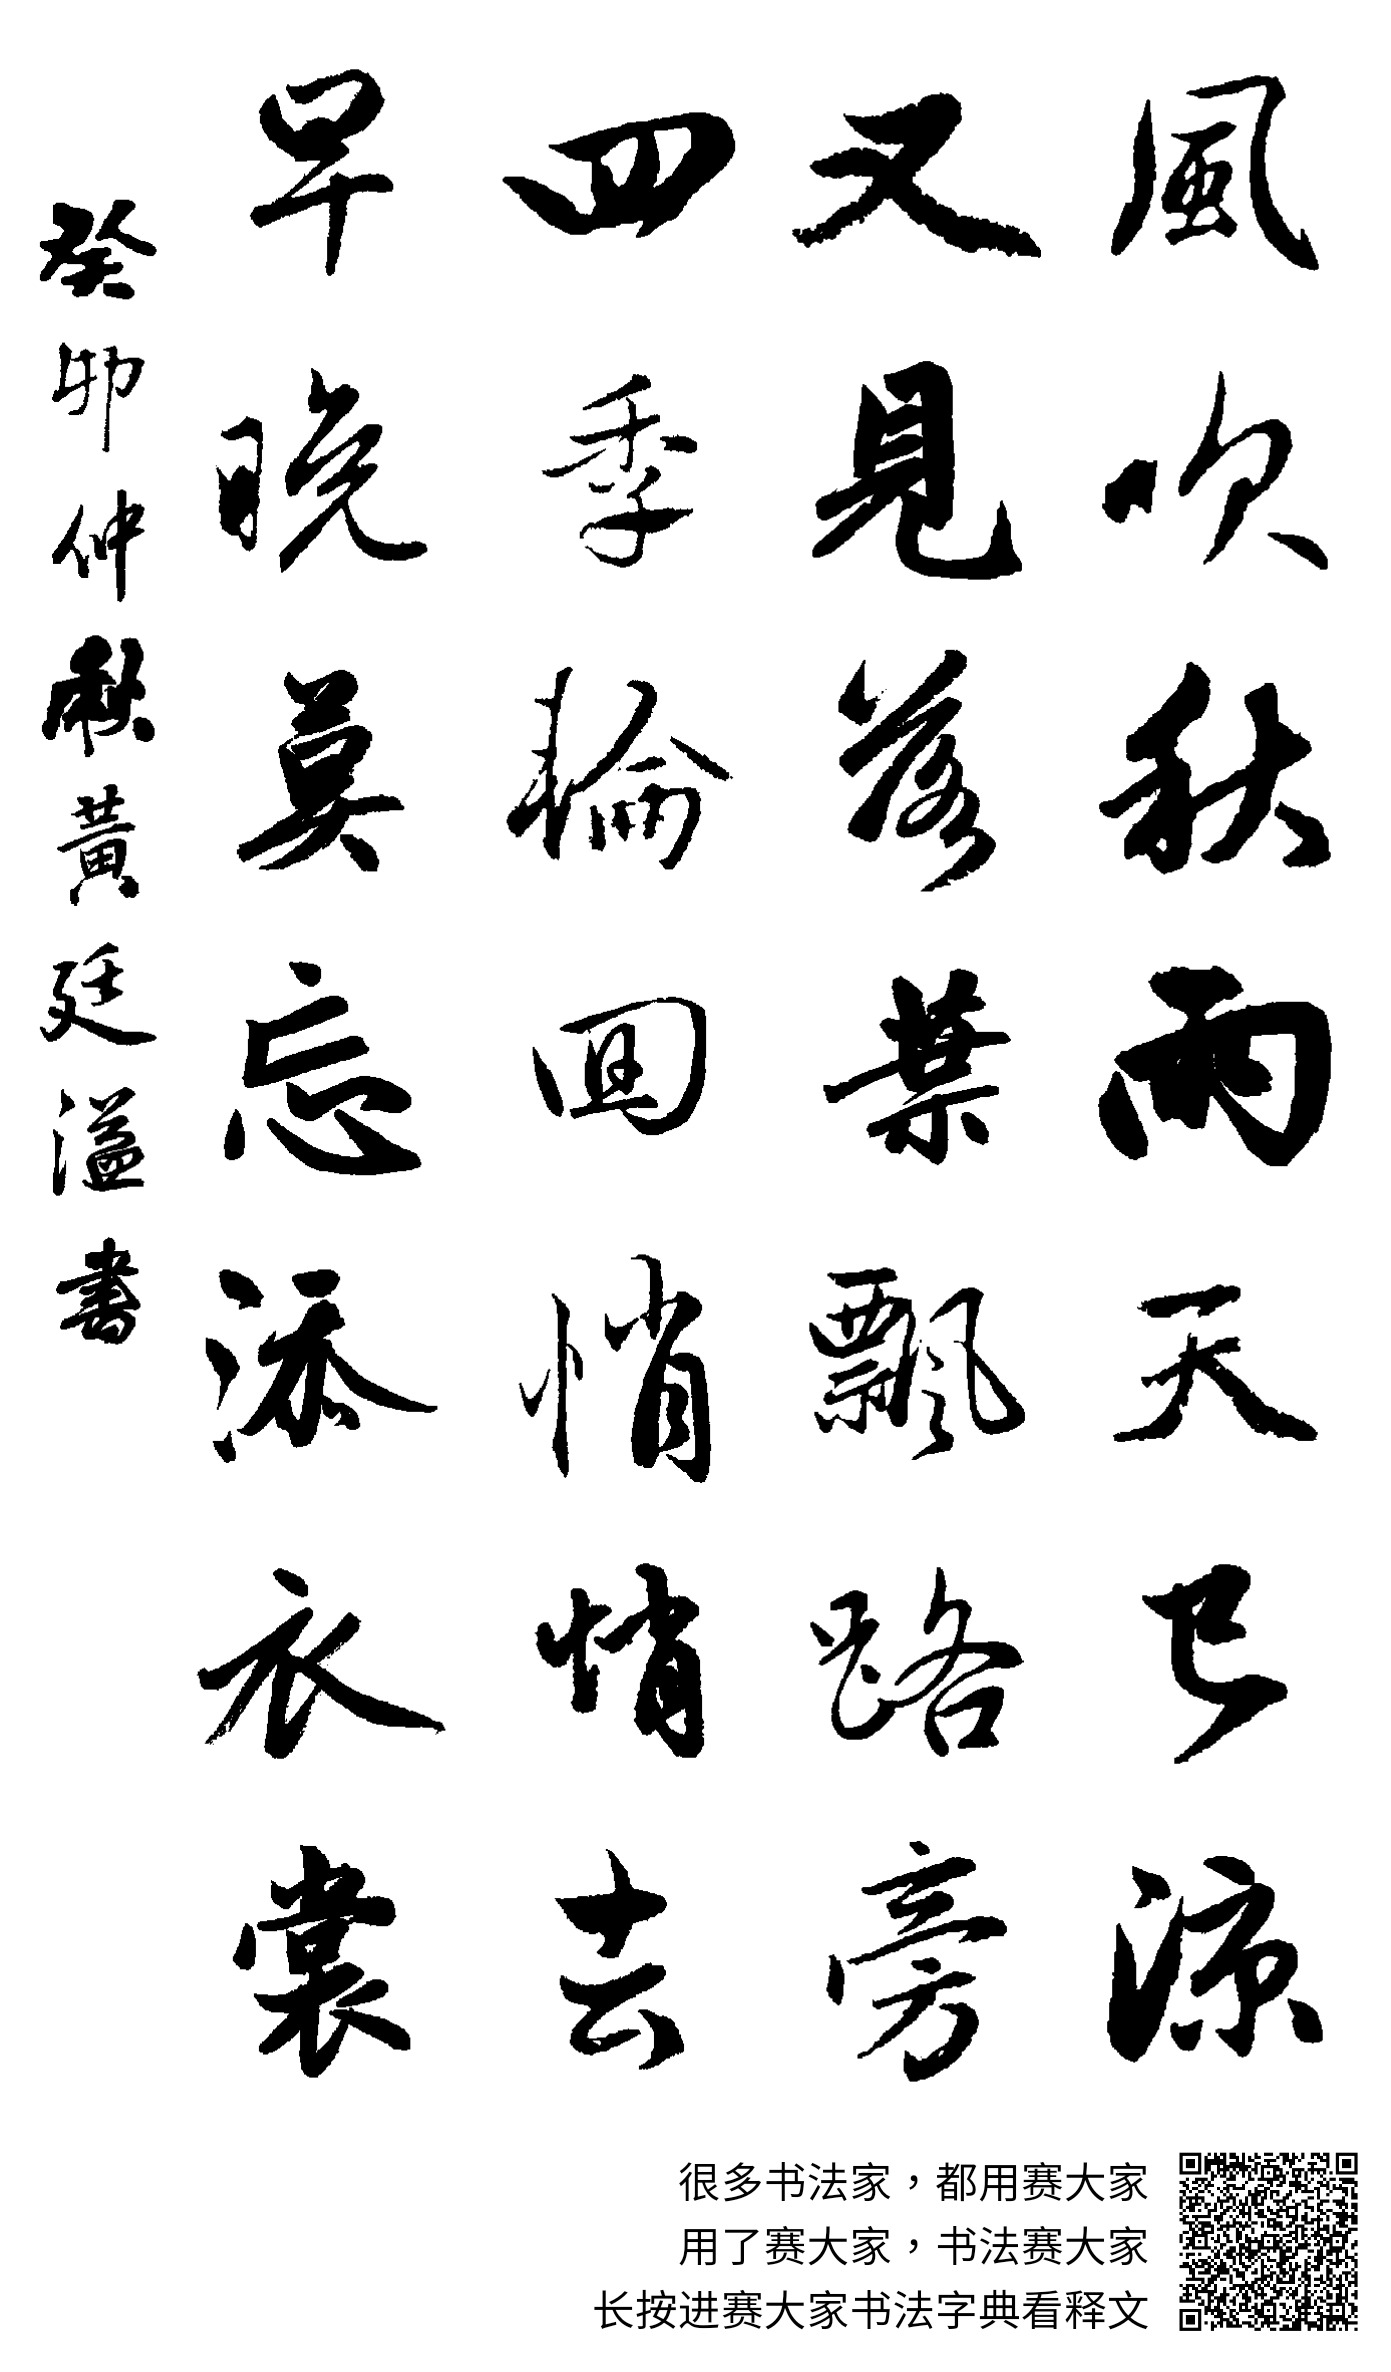 風吹秋雨天已涼
又見落葉飄路旁
四季輪回悄悄去
早晚莫忘添衣裳
癸卯仲秋黃廷溢書
很多书法家，都用赛大家
用了赛大家，书法赛大家
长按进赛大家书法字典看释文